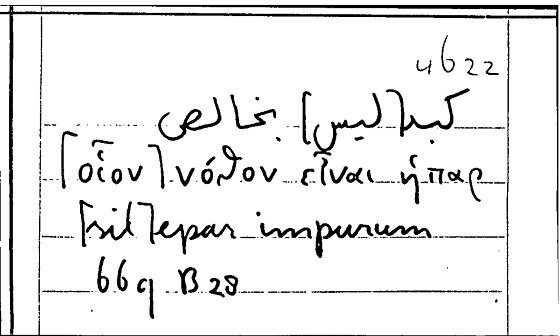 4622
كبد [ليس] بخالص
⌈οἷον⌉ νόθον εἶναι ἧπαρ
⌈sit⌉ epar impurum
669 B 28